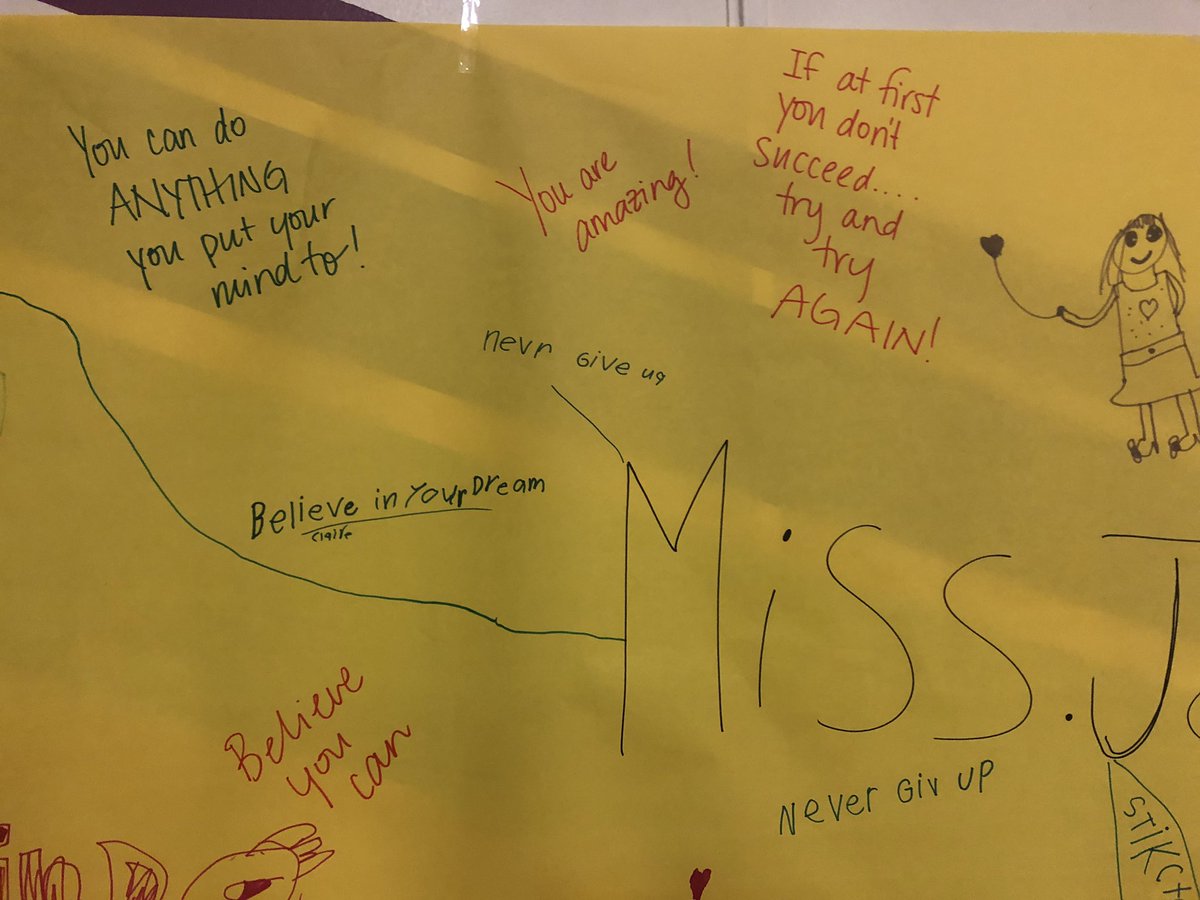 You can do
ANYTHING
you put your
mind to!
You are
amazing!
If at first
you don't
Succeed....
try and
try
AGAIN!
nevr Give up
Believe in Your Dream
Claire
Miss. J
Believe
you
can
Never Giv up